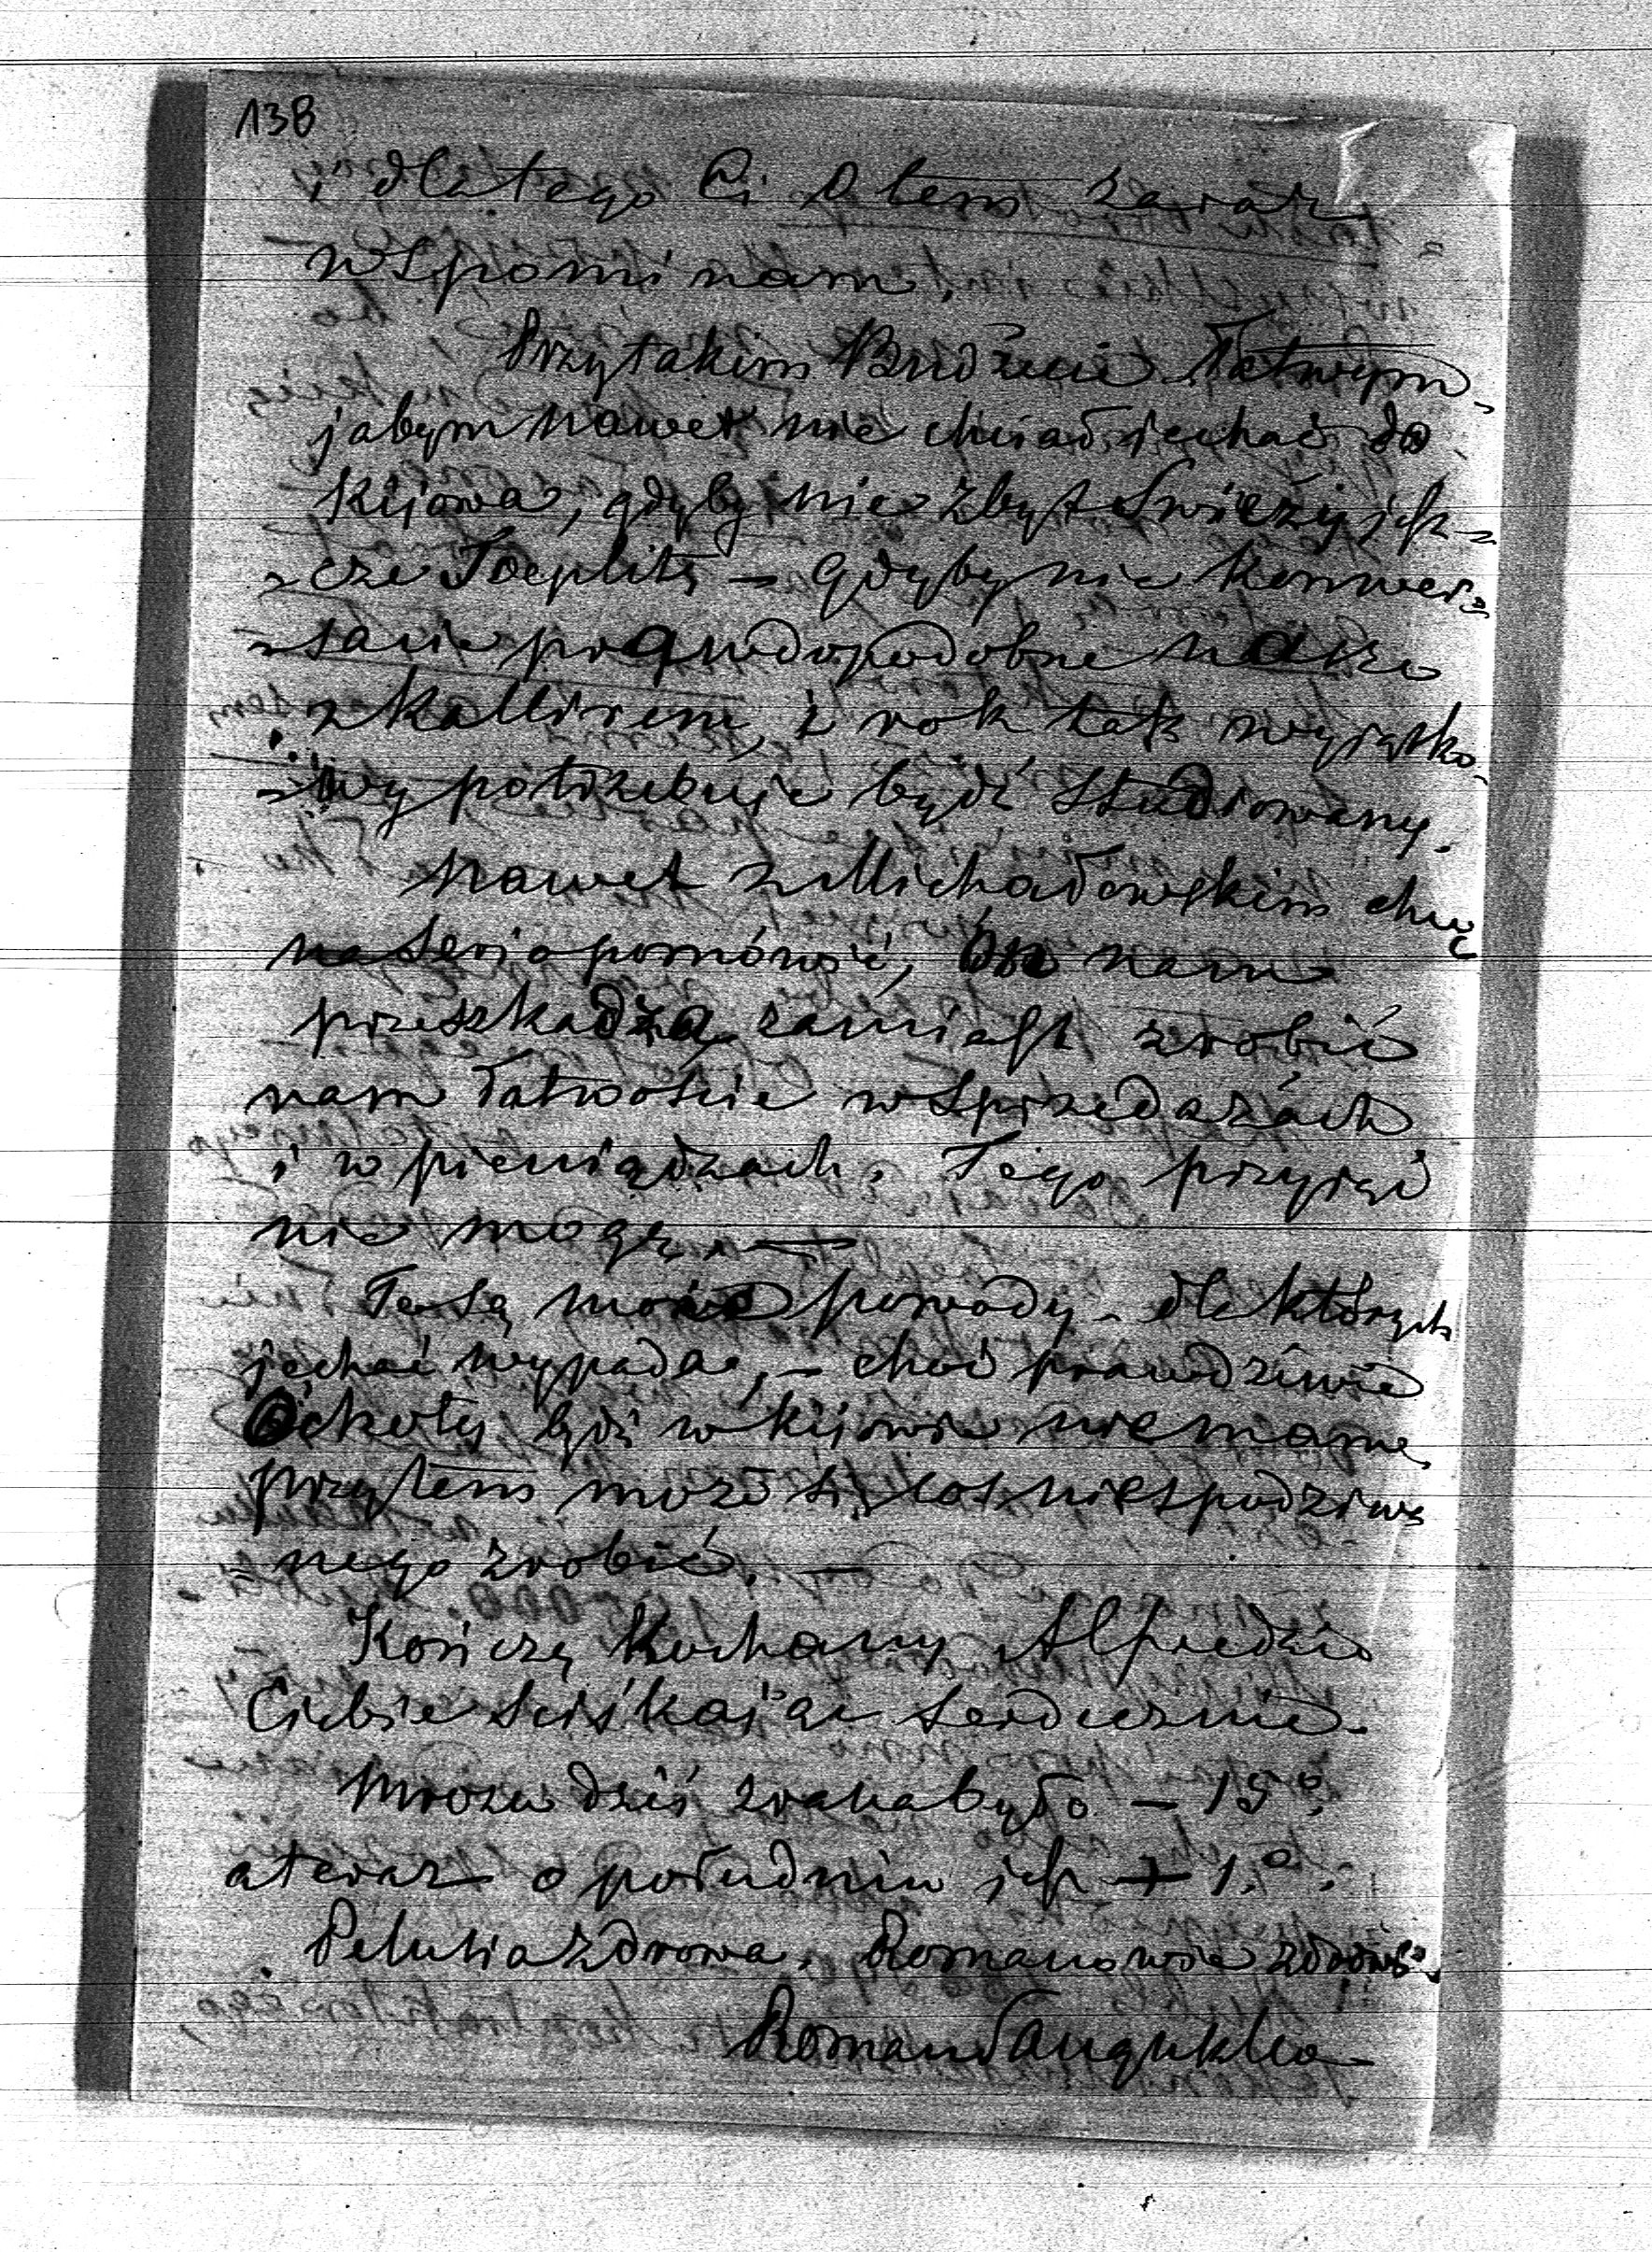 138
i dlatego Ci o tem zaraz
wspominam.
Przytakim Budżecie łatwym
jabym nawet nie chciał jechać do
Kijowa, gdyby nie zbyt świeży jesz-
-cze Toeplitz – gdyby nie konwer-
-sacie prawdopodobne nasze
z Kallirem, i rok tak wyjątko-
-wy potrzebuje bydź studiowany.
Nawet z Michałowskim chcę
na serio pomówić, on nam
przeszkadza zamiast zrobić
nam łatwoście w sprzedażach
i w pieniądzach. Tego przyjąć
nie mogę. —
Te są moie powody – dla których
jechać wypada, – choć prawdziwie
Ochoty bydź w Kijowie nie mam
przytem może się coś niespodziwa
-nego zrobić. —
Kończę Kochany Alfredzie
Ciebieściskając serdecznie.
Mrozu dziś zrana było – 15°.
a teraz o południu jest + 1.°.
Pelusia zdrowa. Romanowie zdrowi.
Roman Sanguszko